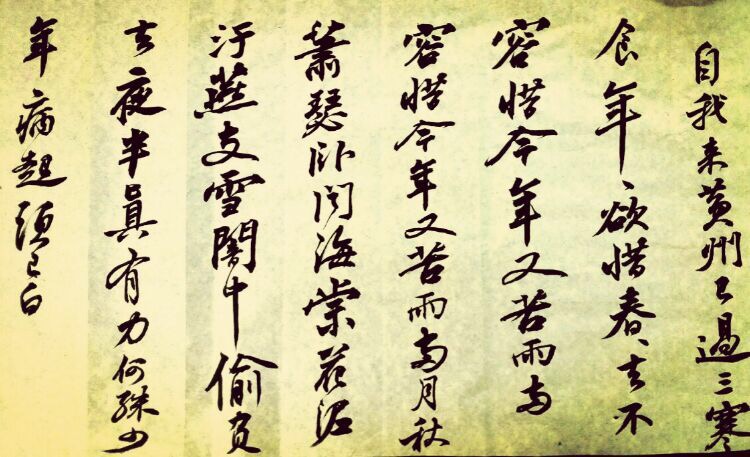 自我来黄州已過三寒
食年欲惜春々去不
容惜今年又苦雨两
容惜今年又苦雨两月秋
萧瑟卧闻海棠花泥
汙燕支雪闇中偷負
去夜半真有力何殊少
年病起须已白